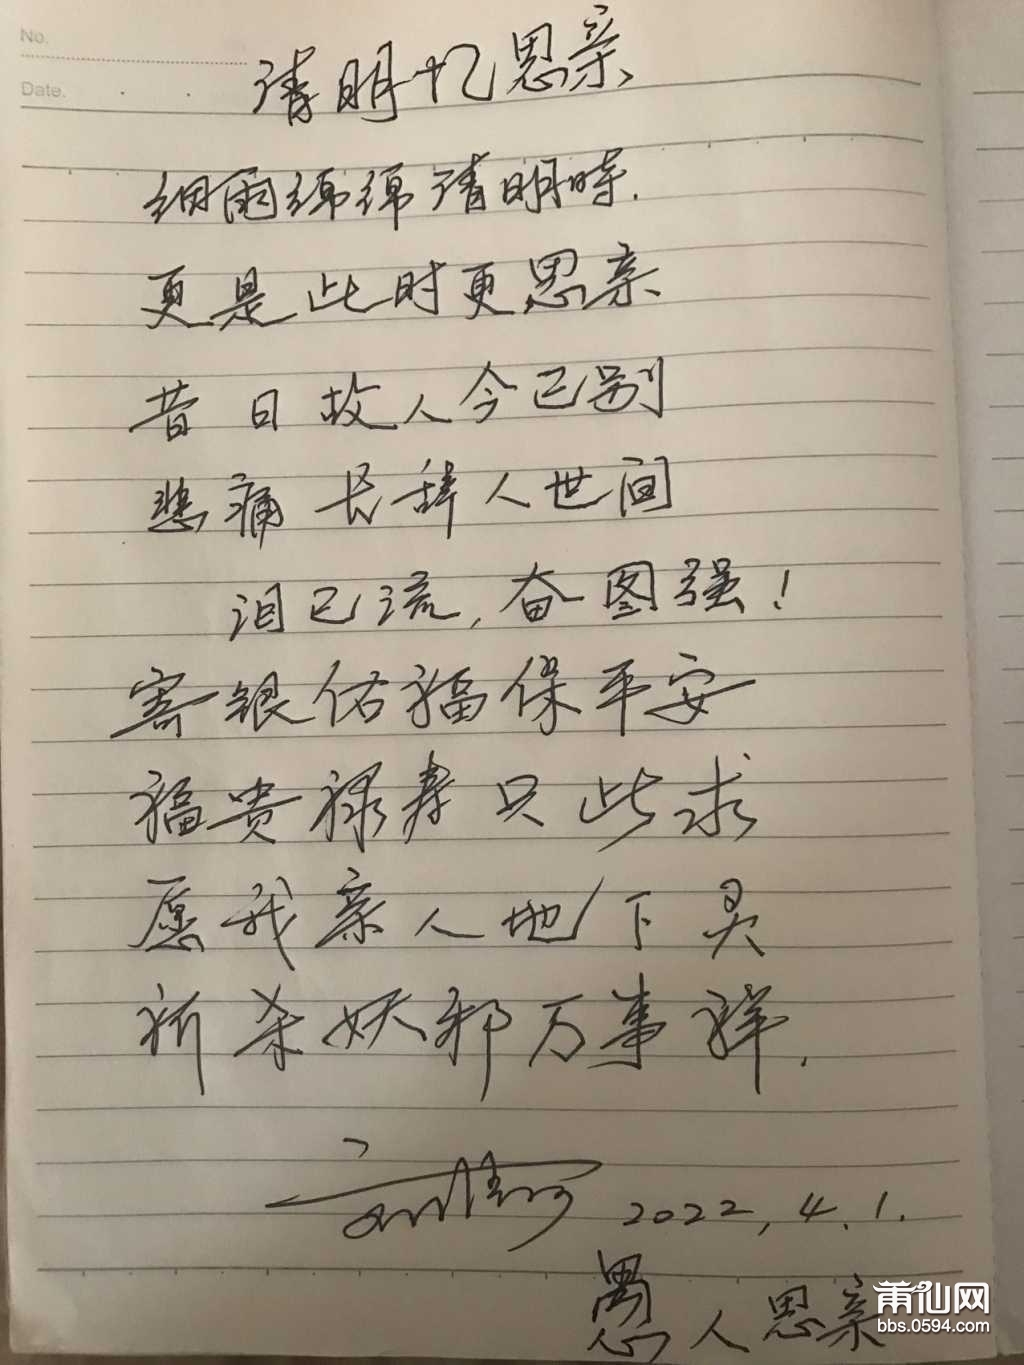 No.
Date.
清明忆思亲
细雨绵绵清明时.
更是此时更思亲
昔日故人今已别
悲痛长辞人世间
泪已流,奋图强!
寄银佑福保平安
福贵禄寿只此求
愿我亲人地下灵
祈杀妖邪万事祥.
2022,4.1.
愚人思亲
莆仙网
bbs.0594.com